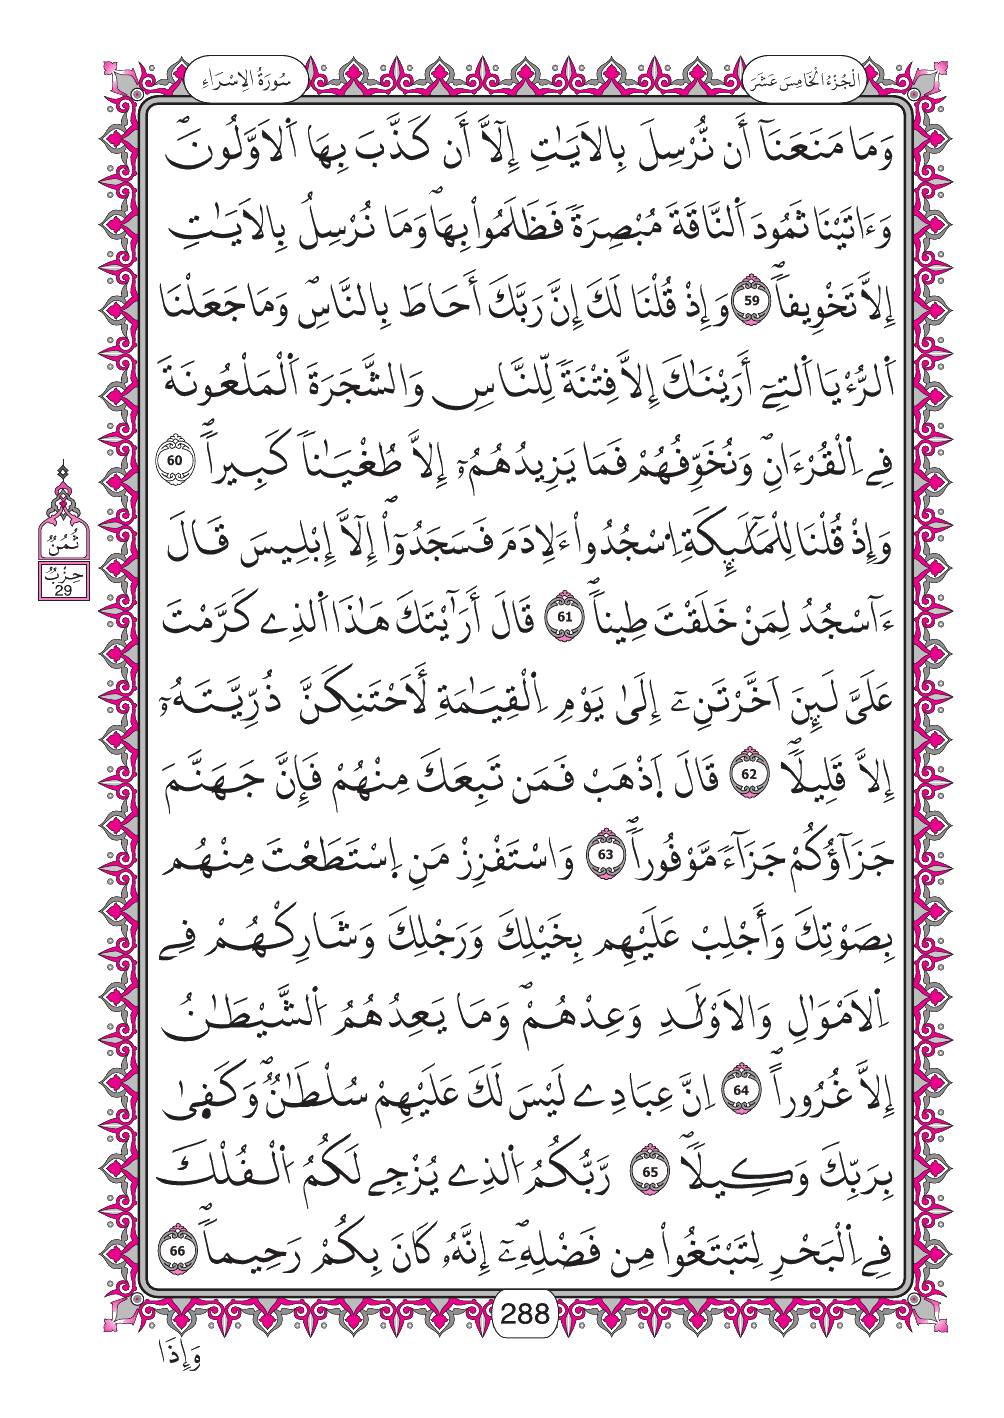 الْجُزْءُ الْخَامِسَ عَشَرَ
سُورَةُ الْإِسْرَاءِ
وَمَا مَنَعَنَآ أَن نُّرْسِلَ بِالَايَٰتِ إِلَّآ أَن كَذَّبَ بِهَا اَلَاوَّلُونَۖ
وَءَاتَيْنَا ثَمُودَ اَلنَّاقَةَ مُبْصِرَةٗ فَظَلَمُواْ بِهَاۖ وَمَا نُرْسِلُ بِالَايَٰتِ
إِلَّا تَخْوِيفاٗۖ 59 وَإِذْ قُلْنَا لَكَ إِنَّ رَبَّكَ أَحَاطَ بِالنَّاسِۖ وَمَا جَعَلْنَا
اَلرُّءْيَا اَلتِےٓ أَرَيْنَٰكَ إِلَّا فِتْنَةٗ لِّلنَّاسِ وَالشَّجَرَةَ اَلْمَلْعُونَةَ
فِے اِلْقُرْءَانِۖ وَنُخَوِّفُهُمْ فَمَا يَزِيدُهُمُۥٓ إِلَّا طُغْيَٰناٗ كَبِيراٗۖ 60
وَإِذْ قُلْنَا لِلْمَلَٰٓئِكَةِ اِسْجُدُواْ ءلِادَمَ فَسَجَدُوٓاْۖ إِلَّآ إِبْلِيسَ قَالَ
ءَآسْجُدُ لِمَنْ خَلَقْتَ طِيناٗۖ 61 قَالَ أَرَٰٓيْتَكَ هَٰذَا اَلذِے كَرَّمْتَ
عَلَيَّ لَئِنَ اَخَّرْتَنِۦٓ إِلَىٰ يَوْمِ اِلْقِيَٰمَةِ لَأَحْتَنِكَنَّ ذُرِّيَّتَهُۥٓ
إِلَّا قَلِيلاٗۖ 62 قَالَ اَذْهَبْ فَمَن تَبِعَكَ مِنْهُمْ فَإِنَّ جَهَنَّمَ
جَزَآؤُكُمْ جَزَآءٗ مَّوْفُوراٗۖ 63 وَاسْتَفْزِزْ مَنِ اِسْتَطَعْتَ مِنْهُم
بِصَوْتِكَ وَأَجْلِبْ عَلَيْهِم بِخَيْلِكَ وَرَجْلِكَ وَشَارِكْهُمْ فِے
اِلَامْوَٰلِ وَالَاوْلَٰدِ وَعِدْهُمْۖ وَمَا يَعِدُهُمُ اُلشَّيْطَٰنُ
إِلَّا غُرُوراًۖ 64 اِنَّ عِبَادِے لَيْسَ لَكَ عَلَيْهِمْ سُلْطَٰنٞۖ وَكَفَىٰ
بِرَبِّكَ وَكِيلاٗۖ 65 رَّبُّكُمُ اُلذِے يُزْجِے لَكُمُ اُلْفُلْكَ
فِے اِلْبَحْرِ لِتَبْتَغُواْ مِن فَضْلِهِۦٓۖ إِنَّهُۥ كَانَ بِكُمْ رَحِيماٗۖ 66
ثُمُنُ
حِزْبُ
29
288
وَإِذَا